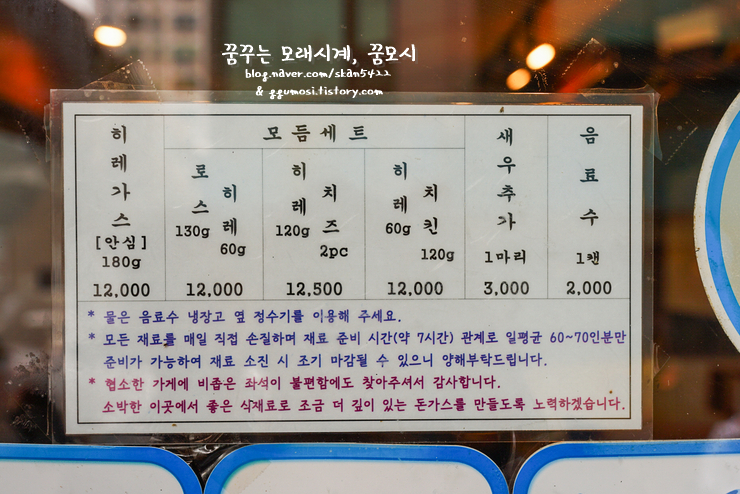 꿈꾸는 모래시계, 꿈모시
blog.naver.com/skan5422
& ggumosi.tistory.com
히레가스
[안심]
180g
12,000
모듬세트
로스
130g
히레
60g
12,000
히레
120g
치즈
2pc
12,500
히레
60g
치킨
120g
12,000
새우추가
1마리
3,000
음료수
1캔
2,000
* 물은 음료수 냉장고 옆 정수기를 이용해 주세요.
* 모든 재료를 매일 직접 손질하며 재료 준비 시간(약 7시간) 관계로 일평균 60~70인분만
준비가 가능하여 재료 소진 시 조기 마감될 수 있으니 양해부탁드립니다.
* 협소한 가게에 비좁은 좌석이 불편함에도 찾아주셔서 감사합니다.
소박한 이곳에서 좋은 식재료로 조금 더 깊이 있는 돈가스를 만들도록 노력하겠습니다.